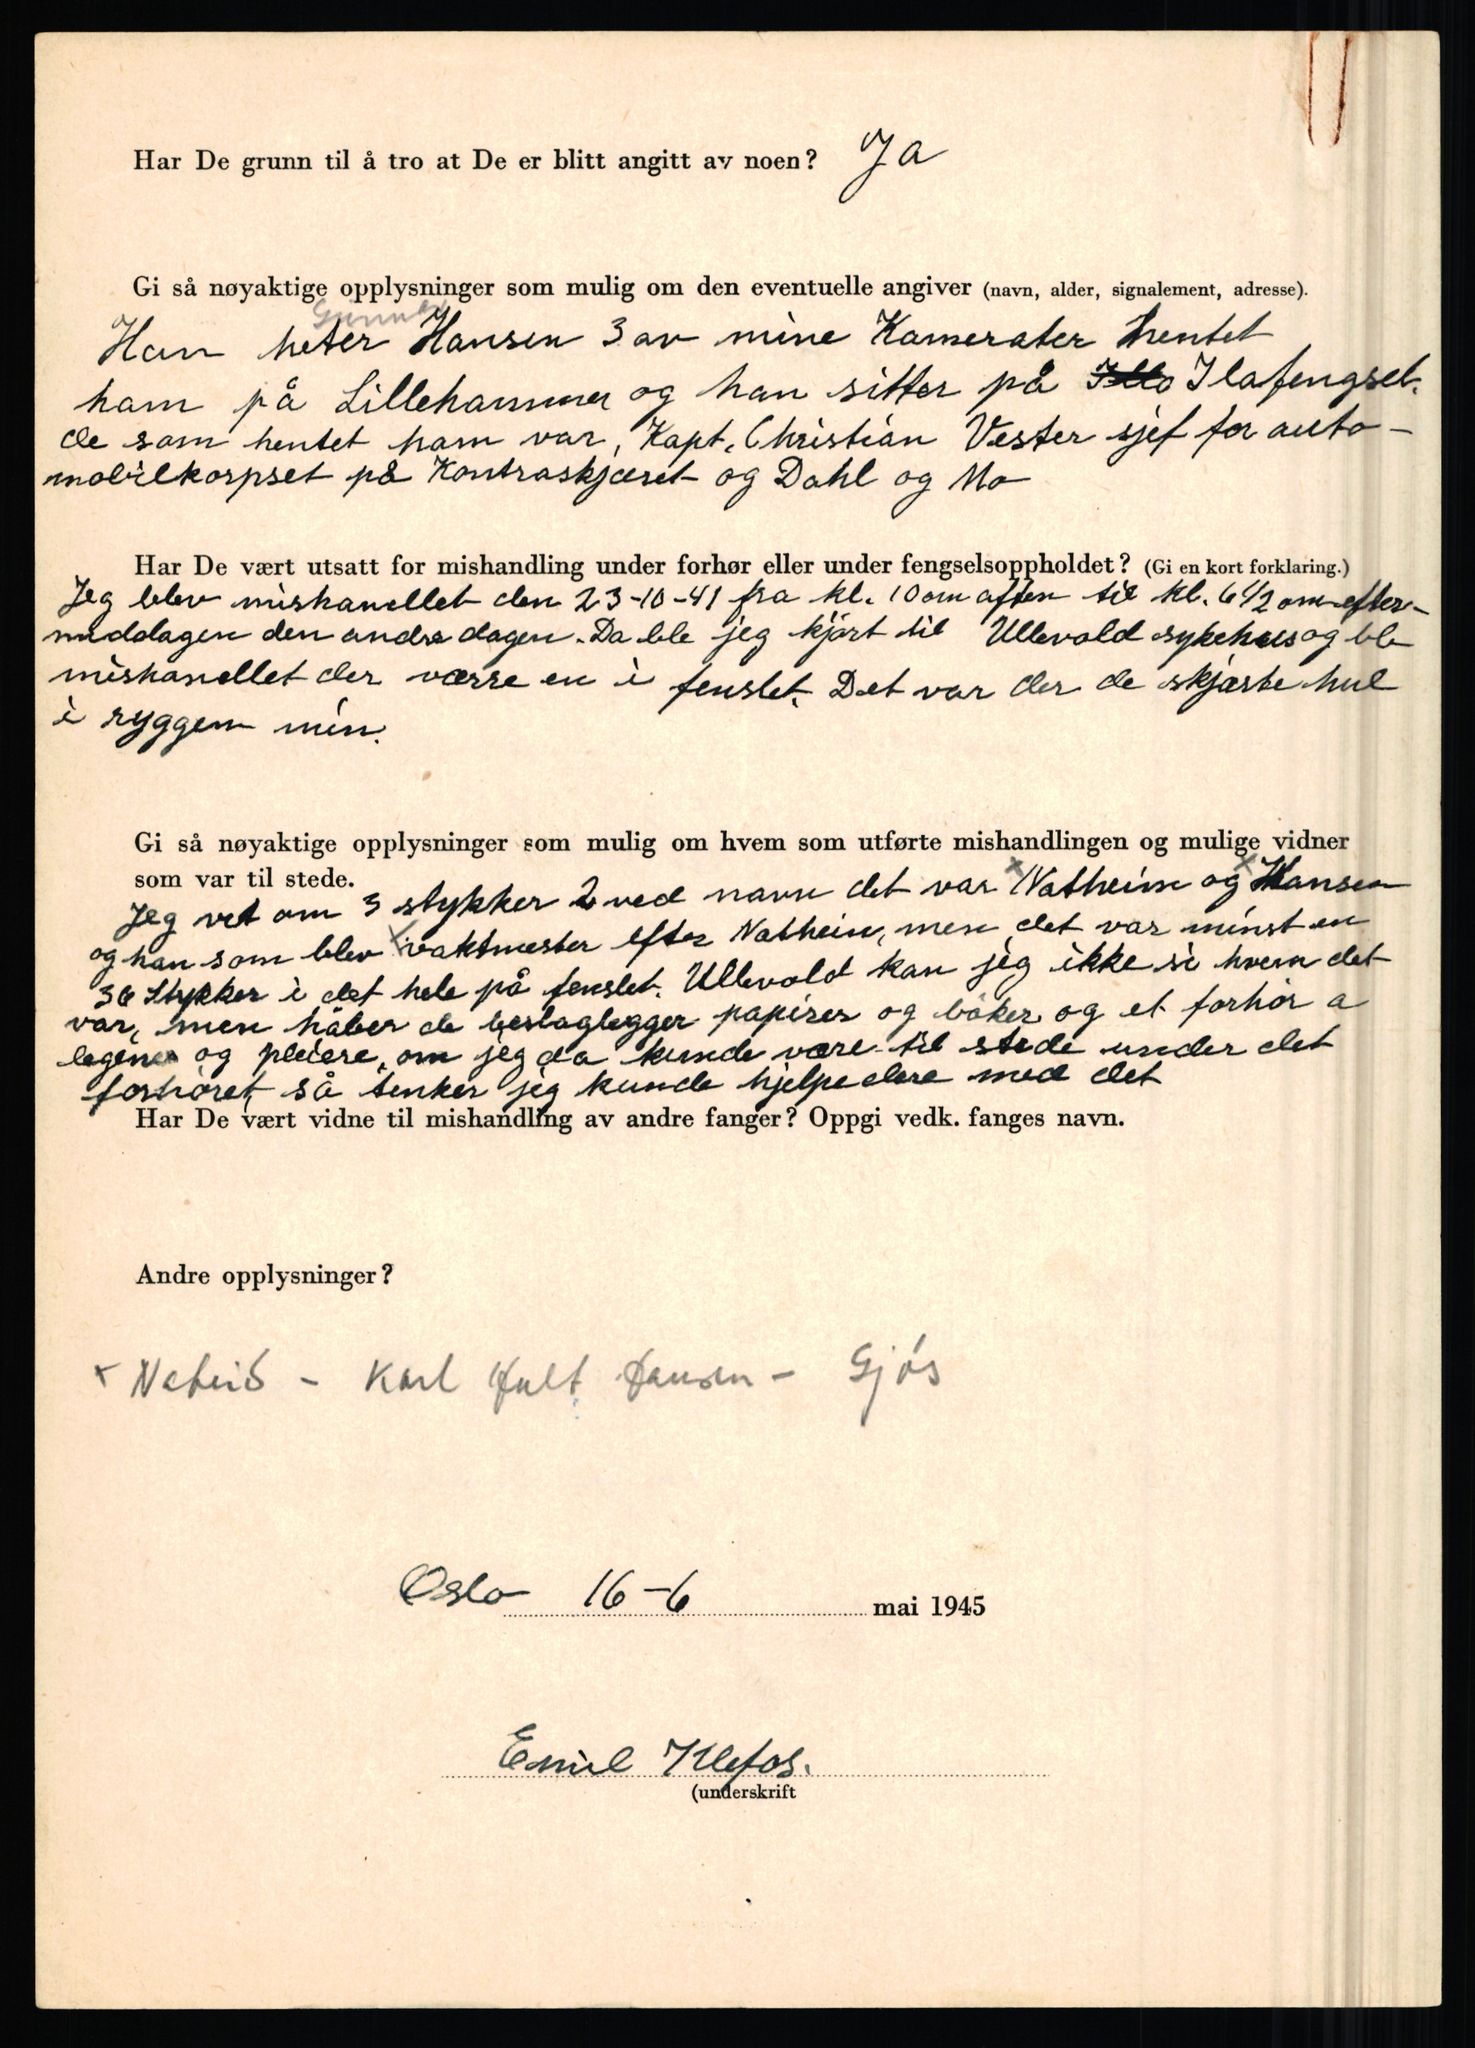 Har De grunn til å tro at De er blitt angitt av noen? Ja
Gi så nøyaktige opplysninger som mulig om den eventuelle angiver (navn, alder, signalement, adresse).
Gunnar
Han heter Hansen 3 av mine Kamerater hentet
ham på Lillehammer og han sitter på Illo Ilafengsel.
de som hentet ham var, Kapt. Christian Vester sjef for auto-
mobilkorpset på Kontraskjæret og Dahl og Mo
Har De vært utsatt for mishandling under forhør eller under fengselsoppholdet? (Gi en kort forklaring.)
Jeg blev mishanellet den 23-10-41 fra kl. 10 om aften til kl. 6 1/2 om efter-
middagen den andre dagen. Da ble jeg kjørt til Ullevold sykehus og ble
mishanellet der værre en i fenslet. Det var der de skjærte hul
i ryggen min.
Gi så nøyaktige opplysninger som mulig om hvem som utførte mishandlingen og mulige vidner
som var til stede.
Jeg vet om 3 stykker 2 ved navn det var x Natheim og x Hansen
og han som blev x vaktmester efter Nathein, men det var minst en
36 stykker i det hele på fenslet. Ullevold kan jeg ikke si hvem det
var, men håber de beslaglegger papirer og bøker og et forhør a
legene og pleiere, om jeg da kunde være til stede under det
forhøret, så tenker jeg kunde hjelpe dere med det
Har De vært vidne til mishandling av andre fanger? Oppgi vedk. fanges navn.
Andre opplysninger?
x - Karl Hansen - Gjøs
Oslo 16-6 mai 1945
Emil Klefos.
(underskrift